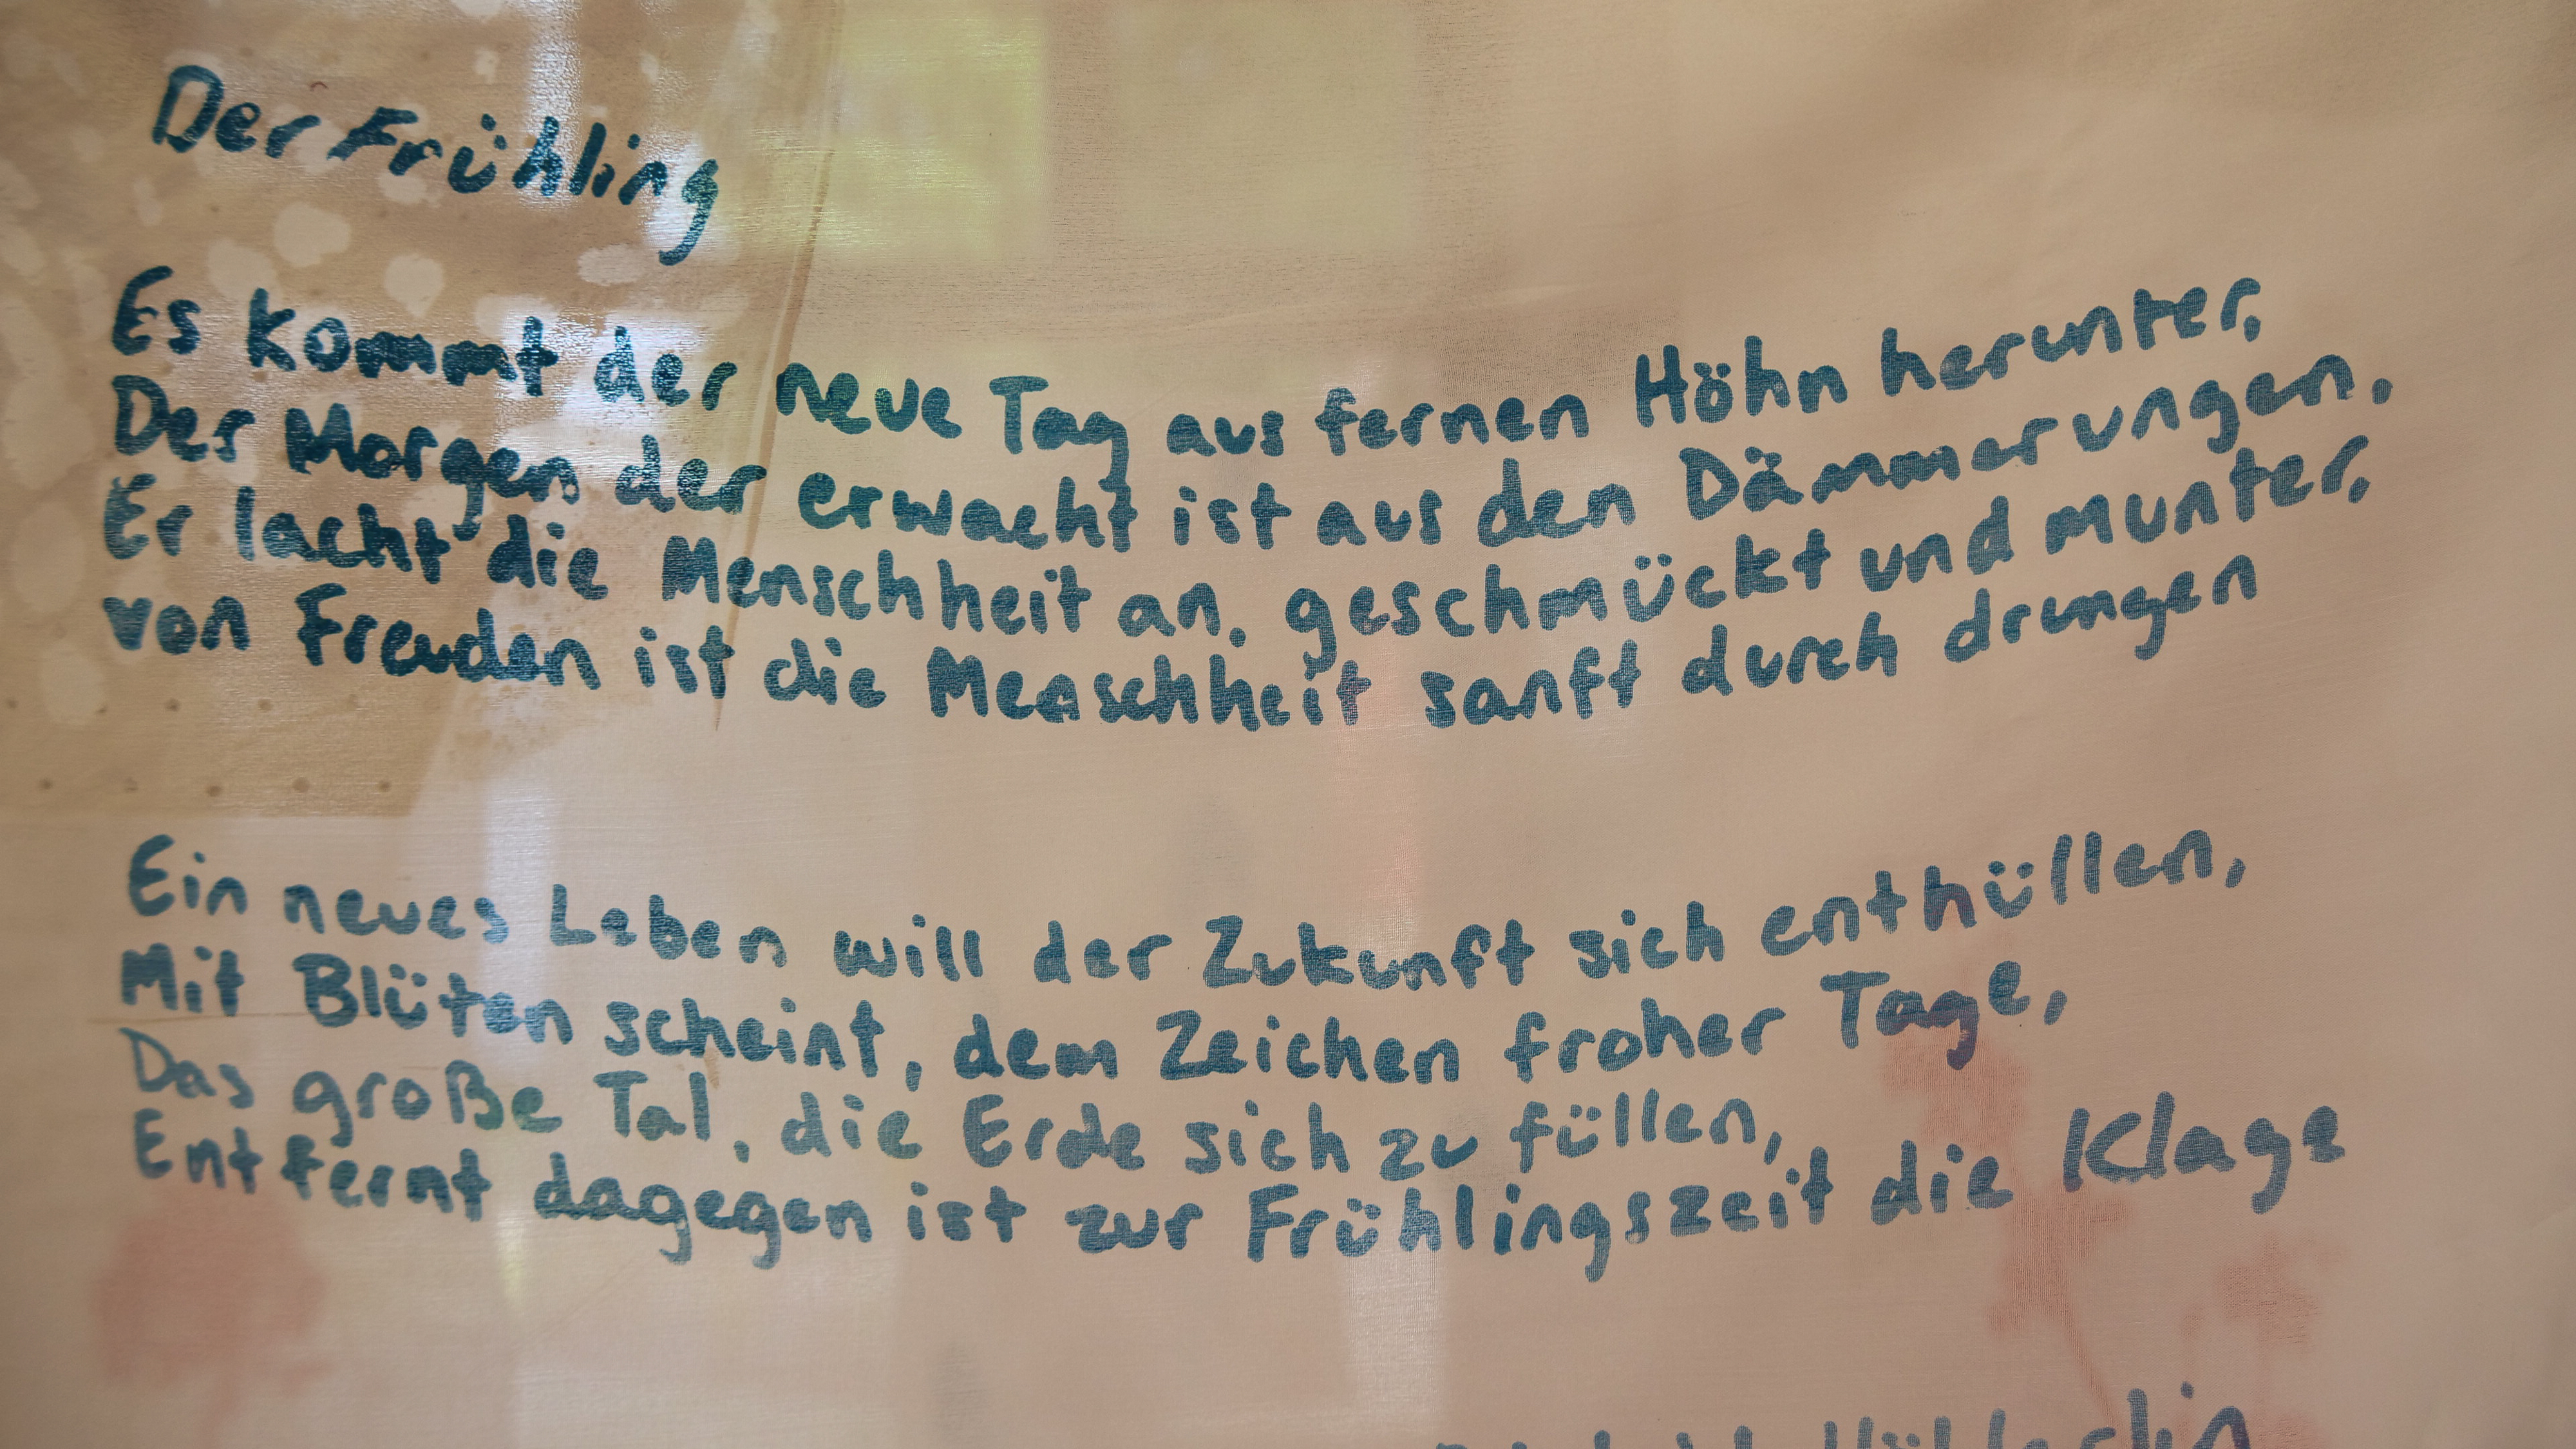 Der Frühling
Es kommt der neue Tag aus fernen Höhn herunter,
Der Morgen der erwacht ist aus den Dämmerungen,
Er lacht die Menschheit an, geschmückt und munter,
von Freuden ist die Menschheit sanft durch drungen
Ein neues Leben will der Zukunft sich enthüllen,
Mit Blüten scheint, dem Zeichen froher Tage,
Das große Tal, die Erde sich zu füllen,
Entfernt dagegen ist zur Frühlingszeit die Klage
Hölderlin